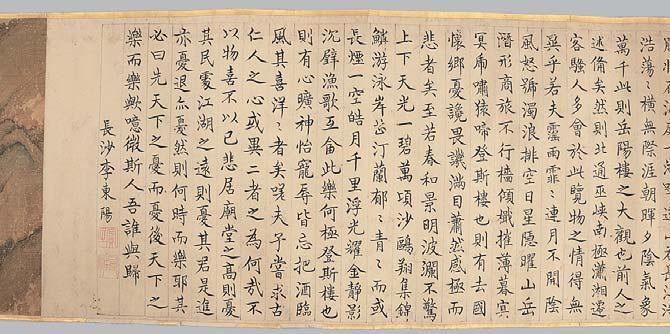 浩蕩〻橫無際涯朝暉夕陰氣象
萬千此則岳陽樓之大觀也前人之
述備矣然則北通巫峽南極瀟湘遷
客騷人多會於此覽物之情得無
異乎若夫霪雨霏〻連月不開陰
風怒號濁浪排空日星隱曜山岳
潛形商旅不行檣傾檝摧薄暮冥
冥虎嘯猿啼登斯樓也則有去國
懷鄉憂讒畏譏滿目蕭然感極而
悲者矣至若春和景明波瀾不驚
上下天光一碧萬頃沙鷗翔集錦
鱗游泳岸芷汀蘭郁〻青〻而或
長煙一空皓月千里浮光耀金靜影
沉壁漁歌互畣此樂何極登斯樓也
則有心曠神怡寵辱皆忘把酒臨
風其喜洋〻者矣嗟夫予嘗求古
仁人之心或異二者之為何哉不
以物喜不以己悲居廟堂之高則憂
其民處江湖之遠則憂其君是進
亦憂退亦憂然則何時而樂耶其
必曰先天下之憂而憂後天下之
樂而樂歟噫微斯人吾誰與歸
長沙李東陽